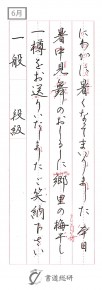 6月
にわかに暑くなってまいりました 本日
暑中見舞のおしるしに郷里の梅干し
一樽をお送りいたしました ご笑納下さい
一般 段級
書道総研